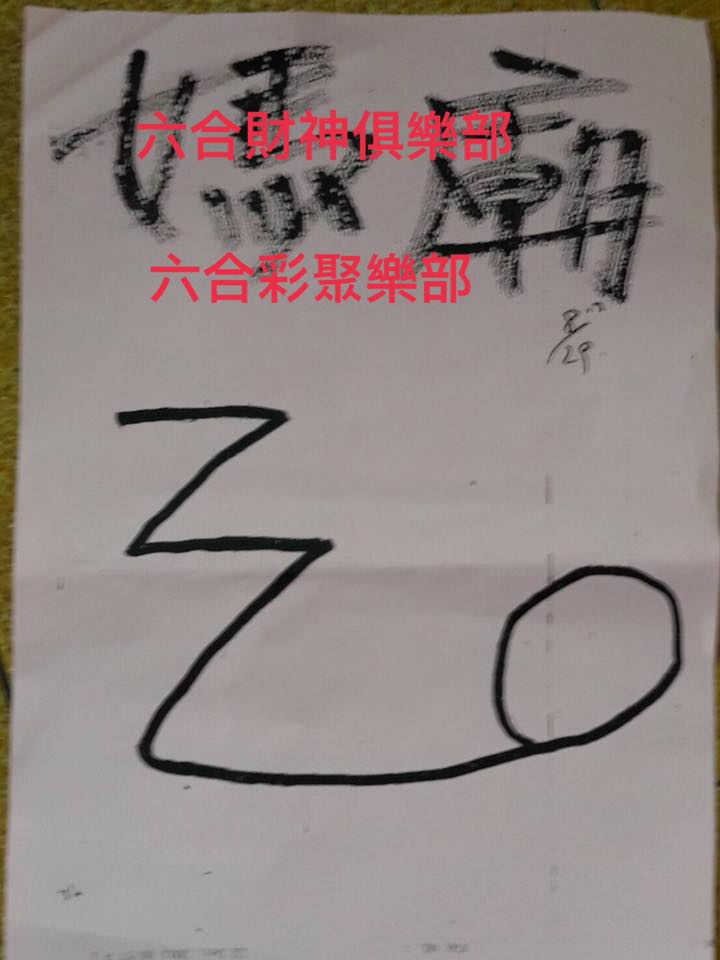 媽廟
六合財神俱樂部
六合彩聚樂部
8/29